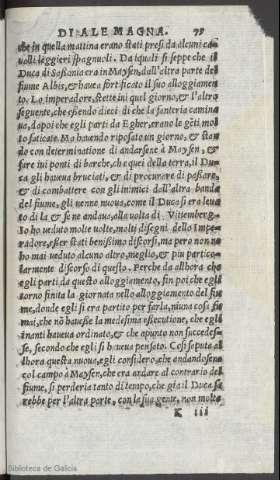 DI ALEMAGNA. 75
che in quella mattina erano stati presi da alcuni ca
valli leggieri spagnuoli. Da iquali si seppe che il
Duca di Sassonia era in Maysen, dall'altra parte del
fiume Albis, & haueua fortificato il suo alloggiamen
to. Lo imperadore, stette ini quel giorno, & l'altro
seguente, che essendo dieci dì che la gente camina
ua, dapoi che egli partì da Egher, erano le fanterie mol
to faticate. Ma hauendo riposato un giorno, & stan
do con determinatione di andarsene à Maysen, &
fare iui ponti di barche, che quei della terra, il Du
ca gli haueua bruciati, & di procurare di passare,
& di combattere con gli inimici dall'altra banda
del fiume, gli uenne nuoua, come il Duca si era leua
to di la & se ne andaua, alla uolta di Vitiemberg.
Io ho ueduto molte uolte, molti disegni dello Impe
radore, esser stati benissimo discorsi, ma però non ne
ho mai ueduto alcuno altro, meglio, & piu partico
larmente discorso di questo. Perche da allhora che
egli partì da questo alloggiamento, fin poi che egli
torno finita la giornata nello alloggiamento del fiu
me, donde egli si era partito per farla, niuna cosa fu
mai, che nõ hauesse la medesima essecutione, che egli
inanti haueua ordinato, & che apunto non succedes-
se, secondo che egli si haueua pensato. Così saputa al
lhora questa nuoua, egli considerò, che andandosene
col campo à Maysen, che era andare al contrario del
fiume, si perderia tanto di tempo, che gia il Duca sa
rebbe per l'altra parte, con la sua gente, non molto
K iii
Biblioteca de Galicia